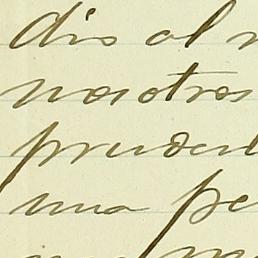 dis al
nosotros
pruden
una pe